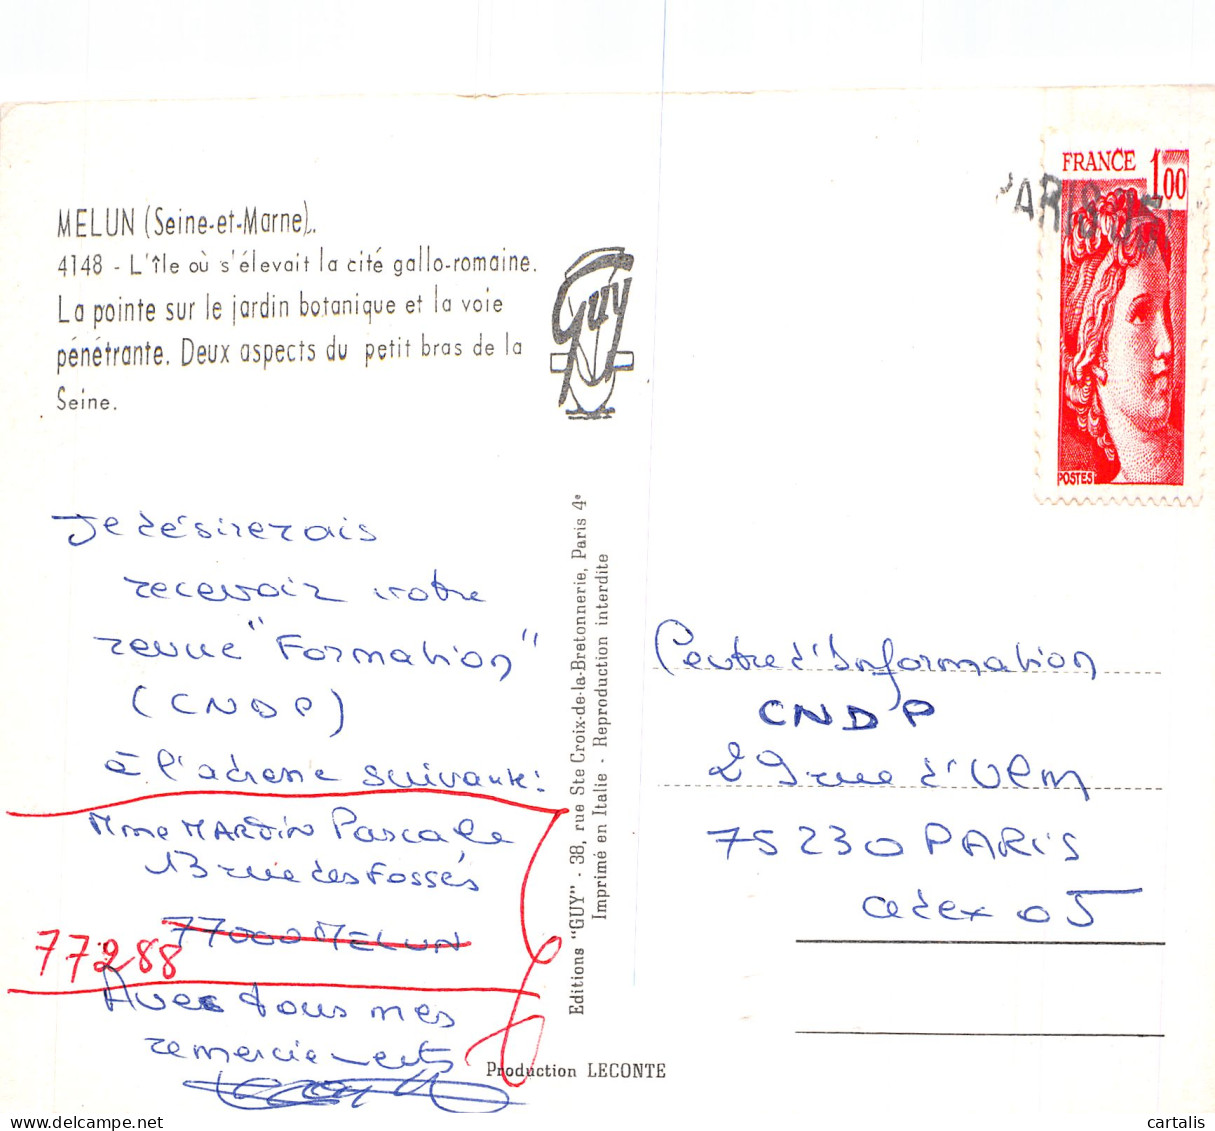 MELUN (Seine-et-Marne).
4148 - L'île où s'élevait la cité gallo-romaine.
La pointe sur le jardin botanique et la voie
pénétrante. Deux aspects du petit bras de la
Seine.
Guy
FRANCE 1,00
PARIS
POSTES
Je désirerais
recevoir votre
revue "Formation"
(CNDP)
à l'adresse suivante:
Mme MARTIN Pascale
13 rue des Fossés
77000 MELUN
77288
Avec tous mes
remerciements
Editions "GUY" - 38, rue Ste Croix-de-la-Bretonnerie, Paris 4e
Imprimé en Italie - Reproduction interdite
Production LECONTE
Centre d'Information
CNDP
29 rue d'Ulm
75230 PARIS
cedex 05
cartalis
www.delcampe.net